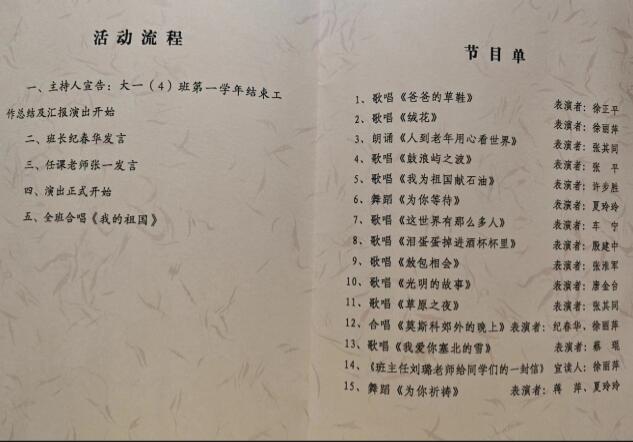 活动流程
一、主持人宣告：大一（4）班第一学年结束工
作总结及汇报演出开始
二、班长纪春华发言
三、任课老师张一发言
四、演出正式开始
五、全班合唱《我的祖国》
节目单
1、歌唱《爸爸的草鞋》 表演者：徐正平
2、歌唱《绒花》 表演者：徐丽萍
3、朗诵《人到老年用心看世界》 表演者：张其同
4、歌唱《鼓浪屿之波》 表演者：张 平
5、歌唱《我为祖国献石油》 表演者：许步胜
6、舞蹈《为你等待》 表演者：夏玲玲
7、歌唱《这世界有那么多人》 表演者：车 宁
8、歌唱《泪蛋蛋掉进酒杯杯里》 表演者：殷建中
9、歌唱《敖包相会》 表演者：张淮军
10、歌唱《光明的故事》 表演者：唐金台
11、歌唱《草原之夜》 表演者：张其同
12、合唱《莫斯科郊外的晚上》表演者：纪春华、徐丽萍
13、歌唱《我爱你塞北的雪》 表演者：蔡 琨
14、《班主任刘璐老师给同学们的一封信》 宣读人：徐丽萍
15、舞蹈《为你祈祷》 表演者：蒋 萍、夏玲玲